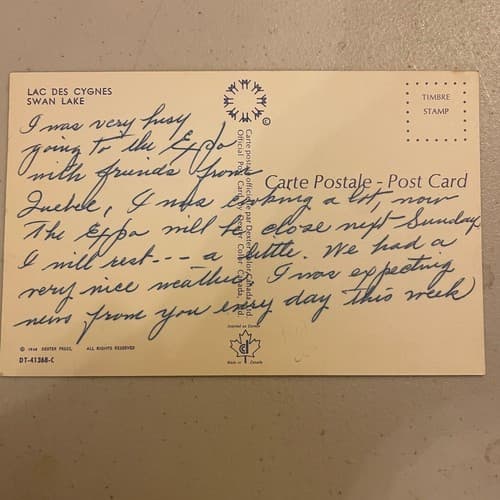 LAC DES CYGNES
SWAN LAKE
TIMBRE
STAMP
©
I was very busy
going to the Expo
with friends from
Quebec, I was cooking a lot, now
The Expo will be close next Sunday
I will rest --- a little. We had a
very nice weather. I was expecting
news from you every day this week
Carte Postale - Post Card
Carte postale officielle par Dexter Color Canada, Ltd.
Official Post Card by Dexter Color Canada, Ltd.
© 1968 DEXTER PRESS, ALL RIGHTS RESERVED
DT-41368-C
Made in Canada